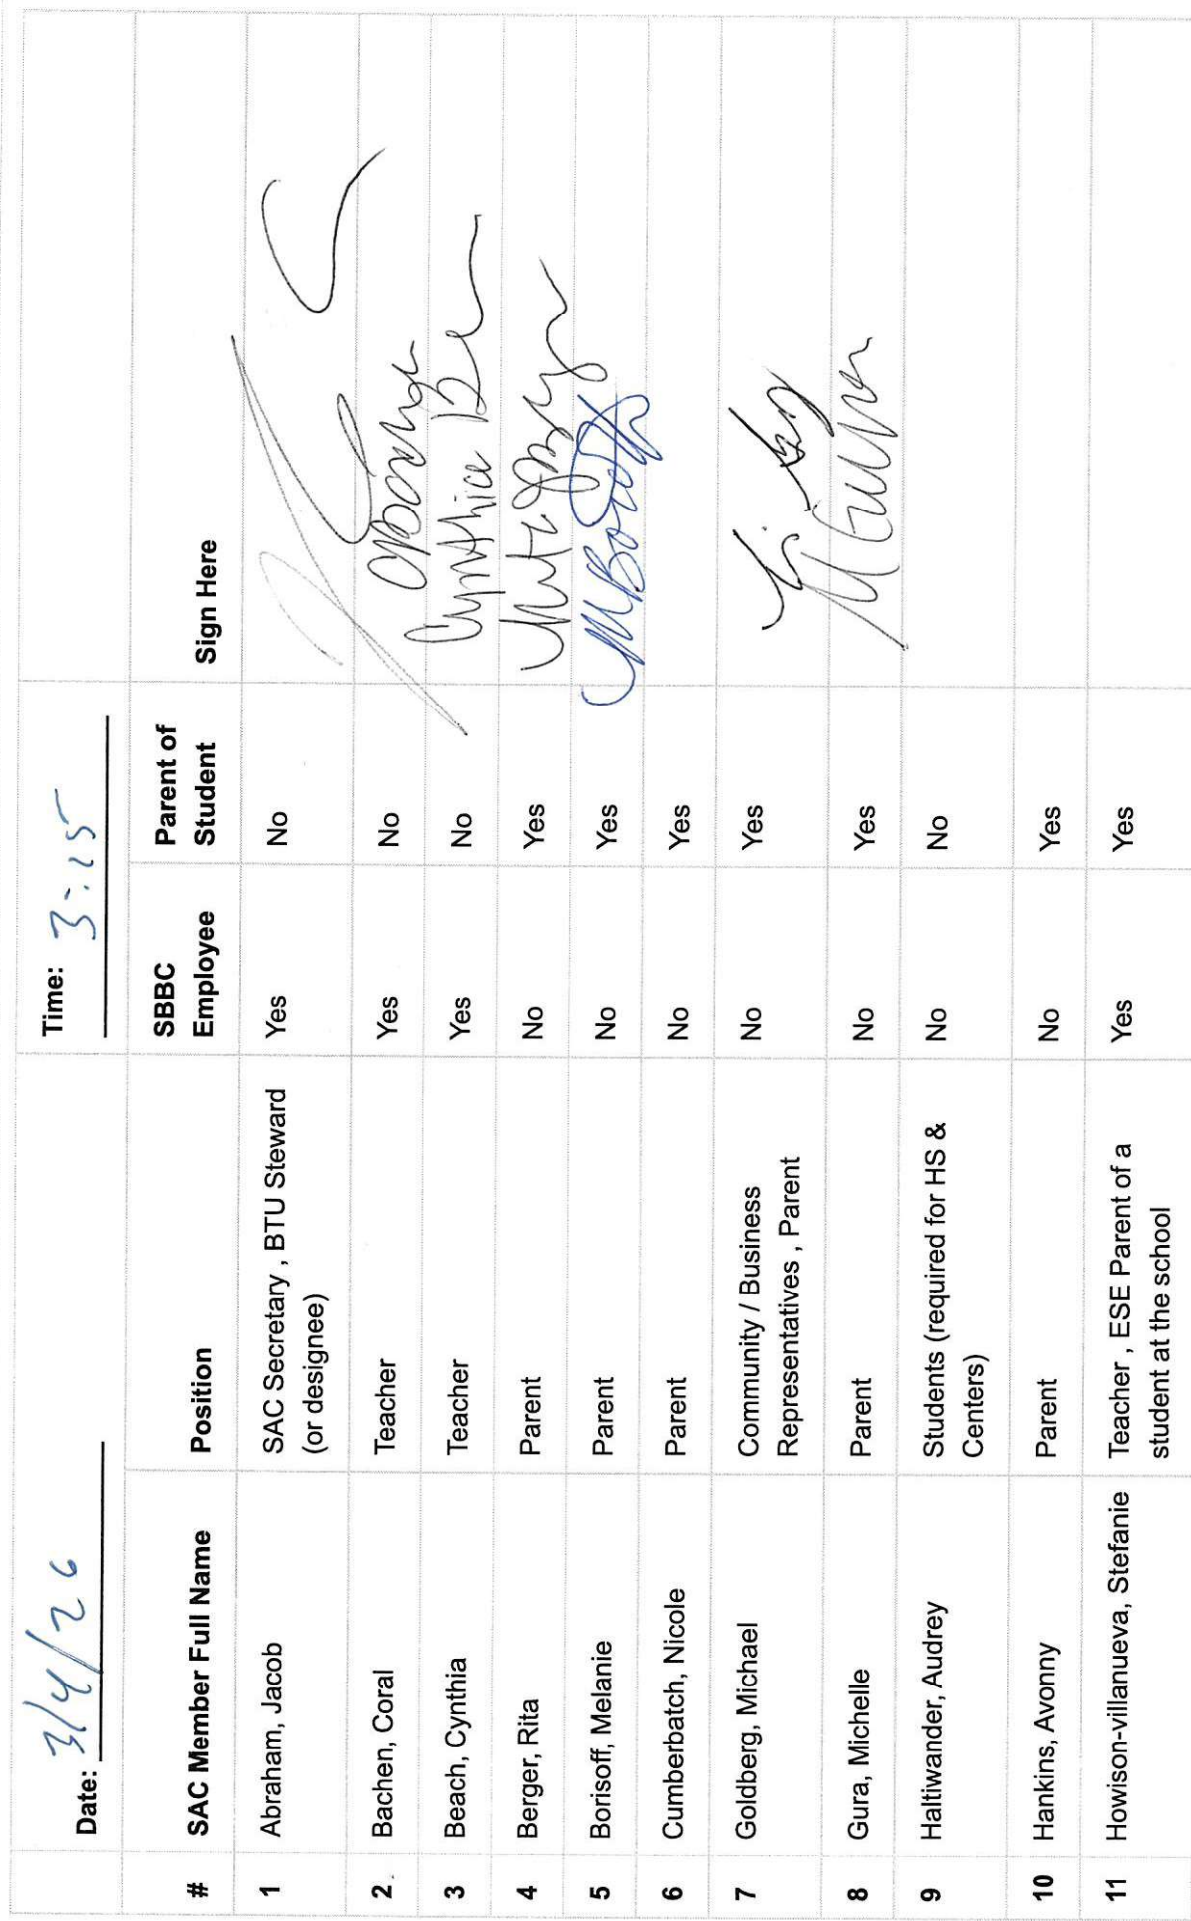 Date: 3/4/26 Time: 3:15
# SAC Member Full Name Position SBBC Employee Parent of Student Sign Here
1 Abraham, Jacob SAC Secretary , BTU Steward (or designee) Yes No
2 Bachen, Coral Teacher Yes No
3 Beach, Cynthia Teacher Yes No Cynthia
4 Berger, Rita Parent No Yes
5 Borisoff, Melanie Parent No Yes
6 Cumberbatch, Nicole Parent No Yes
7 Goldberg, Michael Community / Business Representatives , Parent No Yes
8 Gura, Michelle Parent No Yes
9 Haltiwander, Audrey Students (required for HS & Centers) No No
10 Hankins, Avonny Parent No Yes
11 Howison-villanueva, Stefanie Teacher , ESE Parent of a student at the school Yes Yes